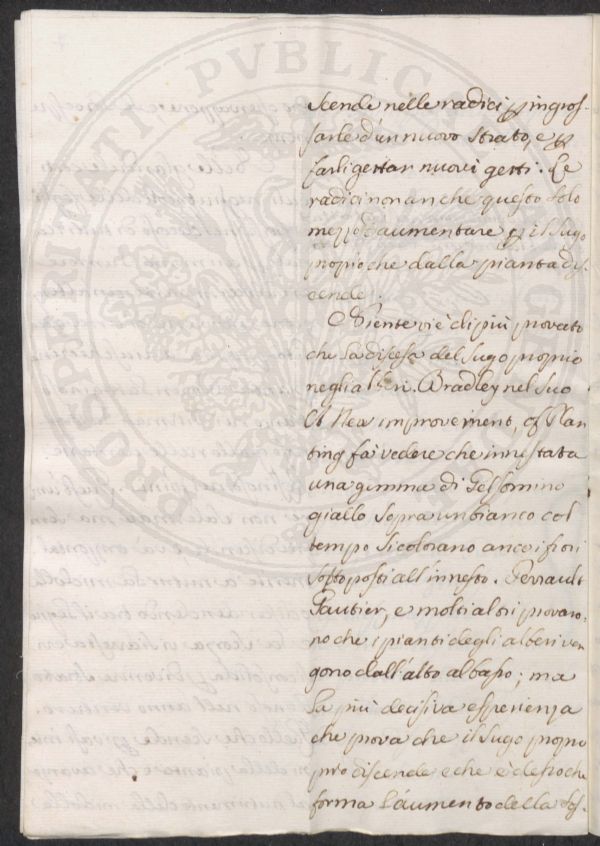 PROSPERITATI PVBLICAE AVGENDAE
scende nelle radici p ingros-
sarle d'un nuovo strato, e p
farli gettar nuovi getti. Le
radici non an che questo solo
mezzo d'aumentare p il sugo
propio che dalla pianta di-
scende.
Niente vi è di più provato
che la discesa del sugo propio
negli alberi. Bradley nel suo
New improvement, of Plan
ting fa vedere che innestata
una gemma di Gelsomino
giallo sopra un bianco col
tempo si colorano anco i fiori
sottoposti all'innesto. Perrault
Gautier, e molti altri provaro-
no che i pianti degli alberi ven
gono dall'alto al basso; ma
la più decisiva esperienza
che prova che il sugo propio
discende e che è desso che
forma l'aumento della sos-